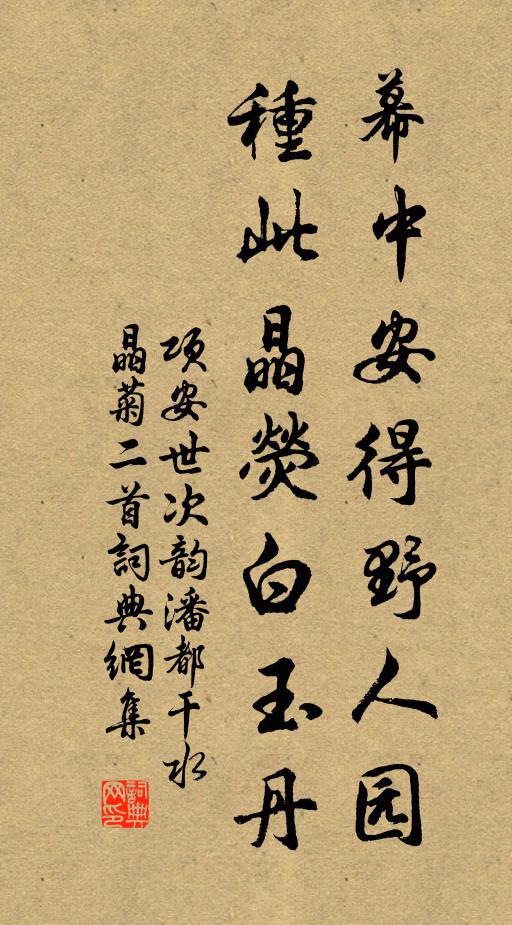 幕中安得野人园
種此晶熒白玉丹
项安世次韵潘都干水
晶菊二首詞典網集
詞典
网印